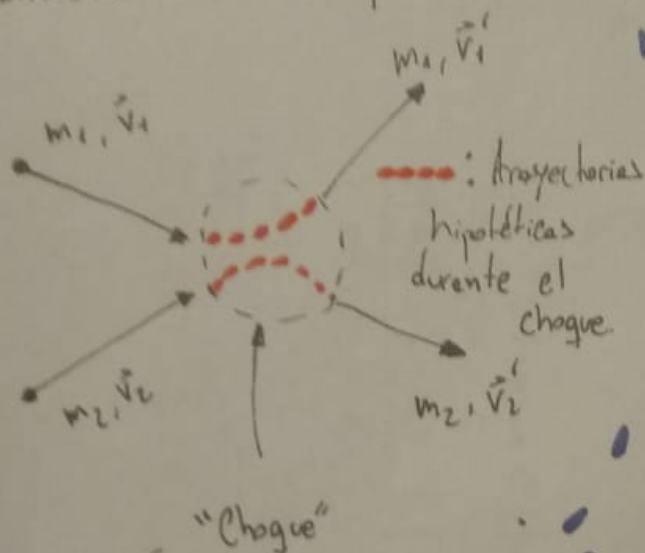 m₁, v⃗₁'
m₁, v⃗₁
: trayectorias
hipotéticas
durante el
choque.
m₂, v⃗₂
m₂, v⃗₂'
"Choque"